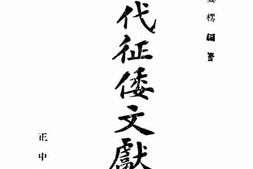 楞編著
代征倭文獻
正中